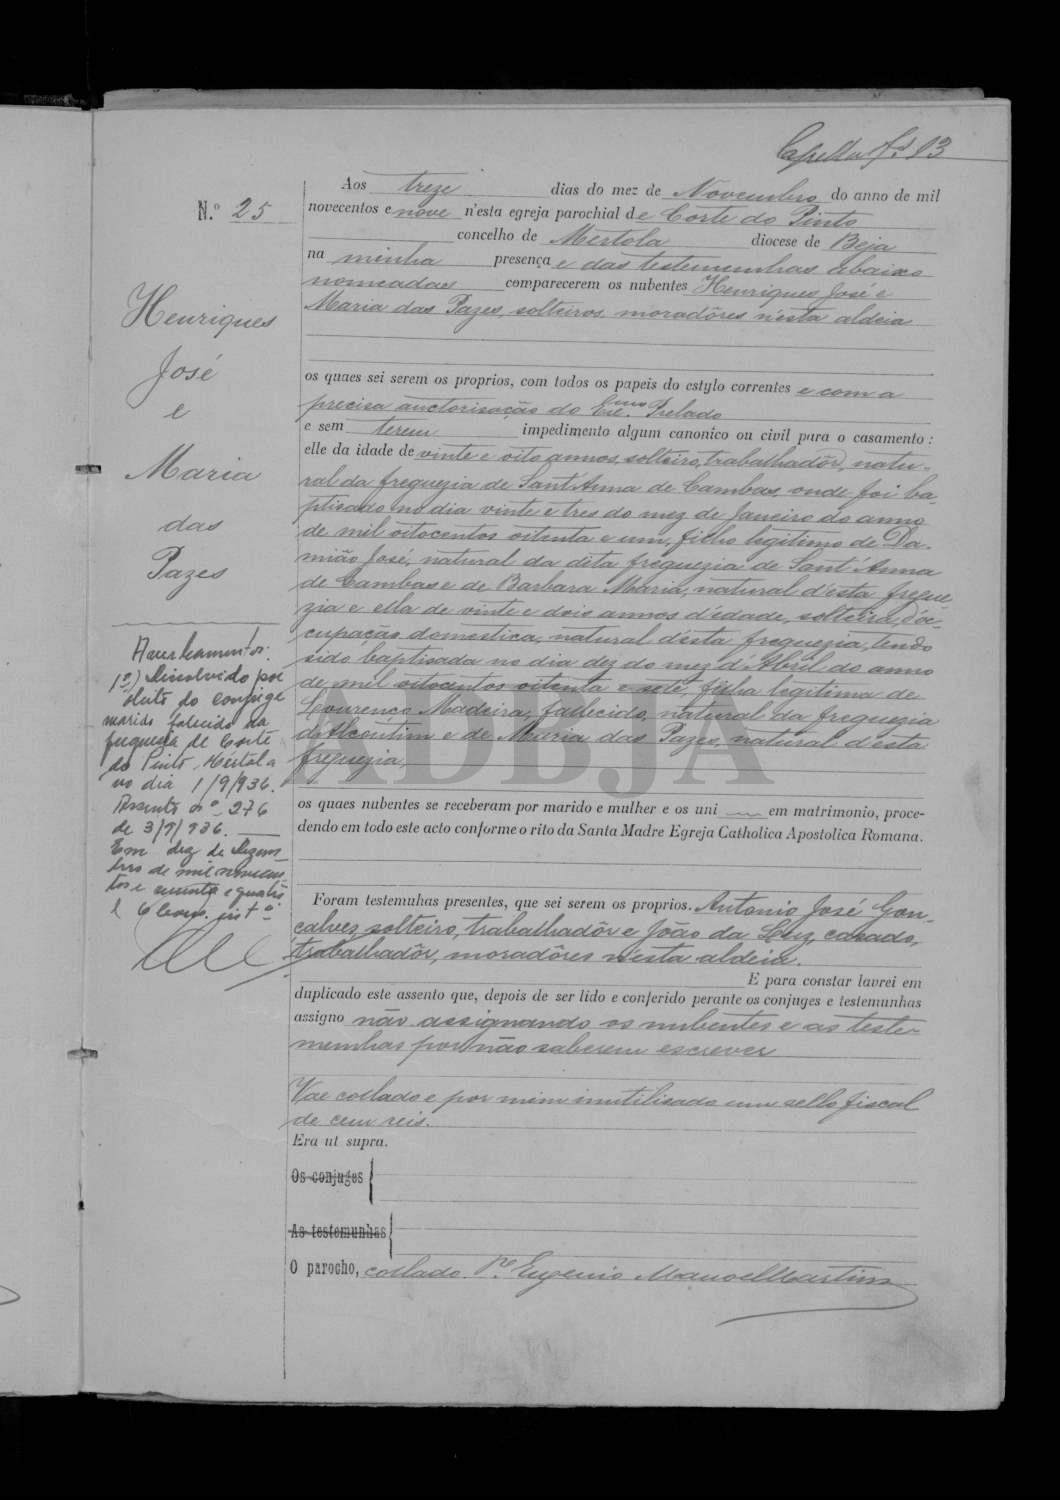 Capella fs 13
N.º 25
Aos treze dias do mez de Novembro do anno de mil
novecentos e nove n'esta egreja parochial de Corte do Pinto
concelho de Mertola diocese de Beja
na minha presença e das testemunhas abaixo
nomeadas comparecerem os nubentes Henriques José e
Maria das Pazes, solteiros, moradôres n'esta aldeia
os quaes sei serem os proprios, com todos os papeis do estylo correntes e com a
precisa auctorisação do Exc.mo Prelado
e sem terem impedimento algum canonico ou civil para o casamento:
elle da idade de vinte e oito annos, solteiro, trabalhadôr, natu-
ral da freguezia de Sant'Anna de Cambas, onde foi ba-
ptisado no dia vinte e tres do mez de Janeiro do anno
de mil oitocentos oitenta e um, filho legitimo de Da-
mião José, natural da dita freguezia de Sant'Anna
de Cambas e de Barbara Maria, natural d'esta fregue-
zia e ella de vinte e dois annos d'edade, solteira, d'oc-
cupação domestica, natural d'esta freguezia, tendo
sido baptisada no dia dez do mez d'Abril do anno
de mil oitocentos oitenta e sete, filha legitima de
Lourenço Madeira, fallecido, natural da freguezia
d'Alcoutim e de Maria das Pazes, natural d'esta
freguezia,
os quaes nubentes se receberam por marido e mulher e os uni em matrimonio, proce-
dendo em todo este acto conforme o rito da Santa Madre Egreja Catholica Apostolica Romana.
Foram testemuhas presentes, que sei serem os proprios. Antonio José Gon-
calves, solteiro, trabalhadôr e João da Luz, casado,
trabalhadôr, moradôres n'esta aldeia.
E para constar lavrei em
duplicado este assento que, depois de ser lido e conferido perante os conjuges e testemunhas
assigno não assignando os nubentes e as teste-
munhas por não saberem escrever
Vae collado e por mim inutilisado um sello fiscal
de cem reis.
Era ut supra.
Os conjuges
As testemunhas
O parocho, collado. P.e Eugenio Manoel Martins
Henriques
José
e
Maria
das
Pazes
Averbamentos:
1º) Dissolvido por
obito do conjuge
marido falecido da
freguesia de Corte
do Pinto, Mértola
no dia 1/9/936.
Assento nº 276
de 3/9/936.
Em dez de Dezem-
bro de mil novecen-
tos e
ADBJA